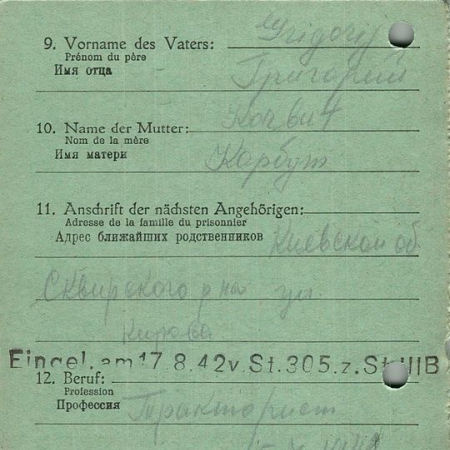 9. Vorname des Vaters: Grigorij
Prénom du père
Имя отца Григорий
10. Name der Mutter: Korbut
Nom de la mère
Имя матери Корбут
11. Anschrift der nächsten Angehörigen:
Adresse de la famille du prisonnier
Адрес ближайших родственников Киевской об
Сквирского р на ул
Кирова
Eingel. am 17.8.42 v. St. 305. z. St. III B
12. Beruf:
Profession
Профессия Тракторист